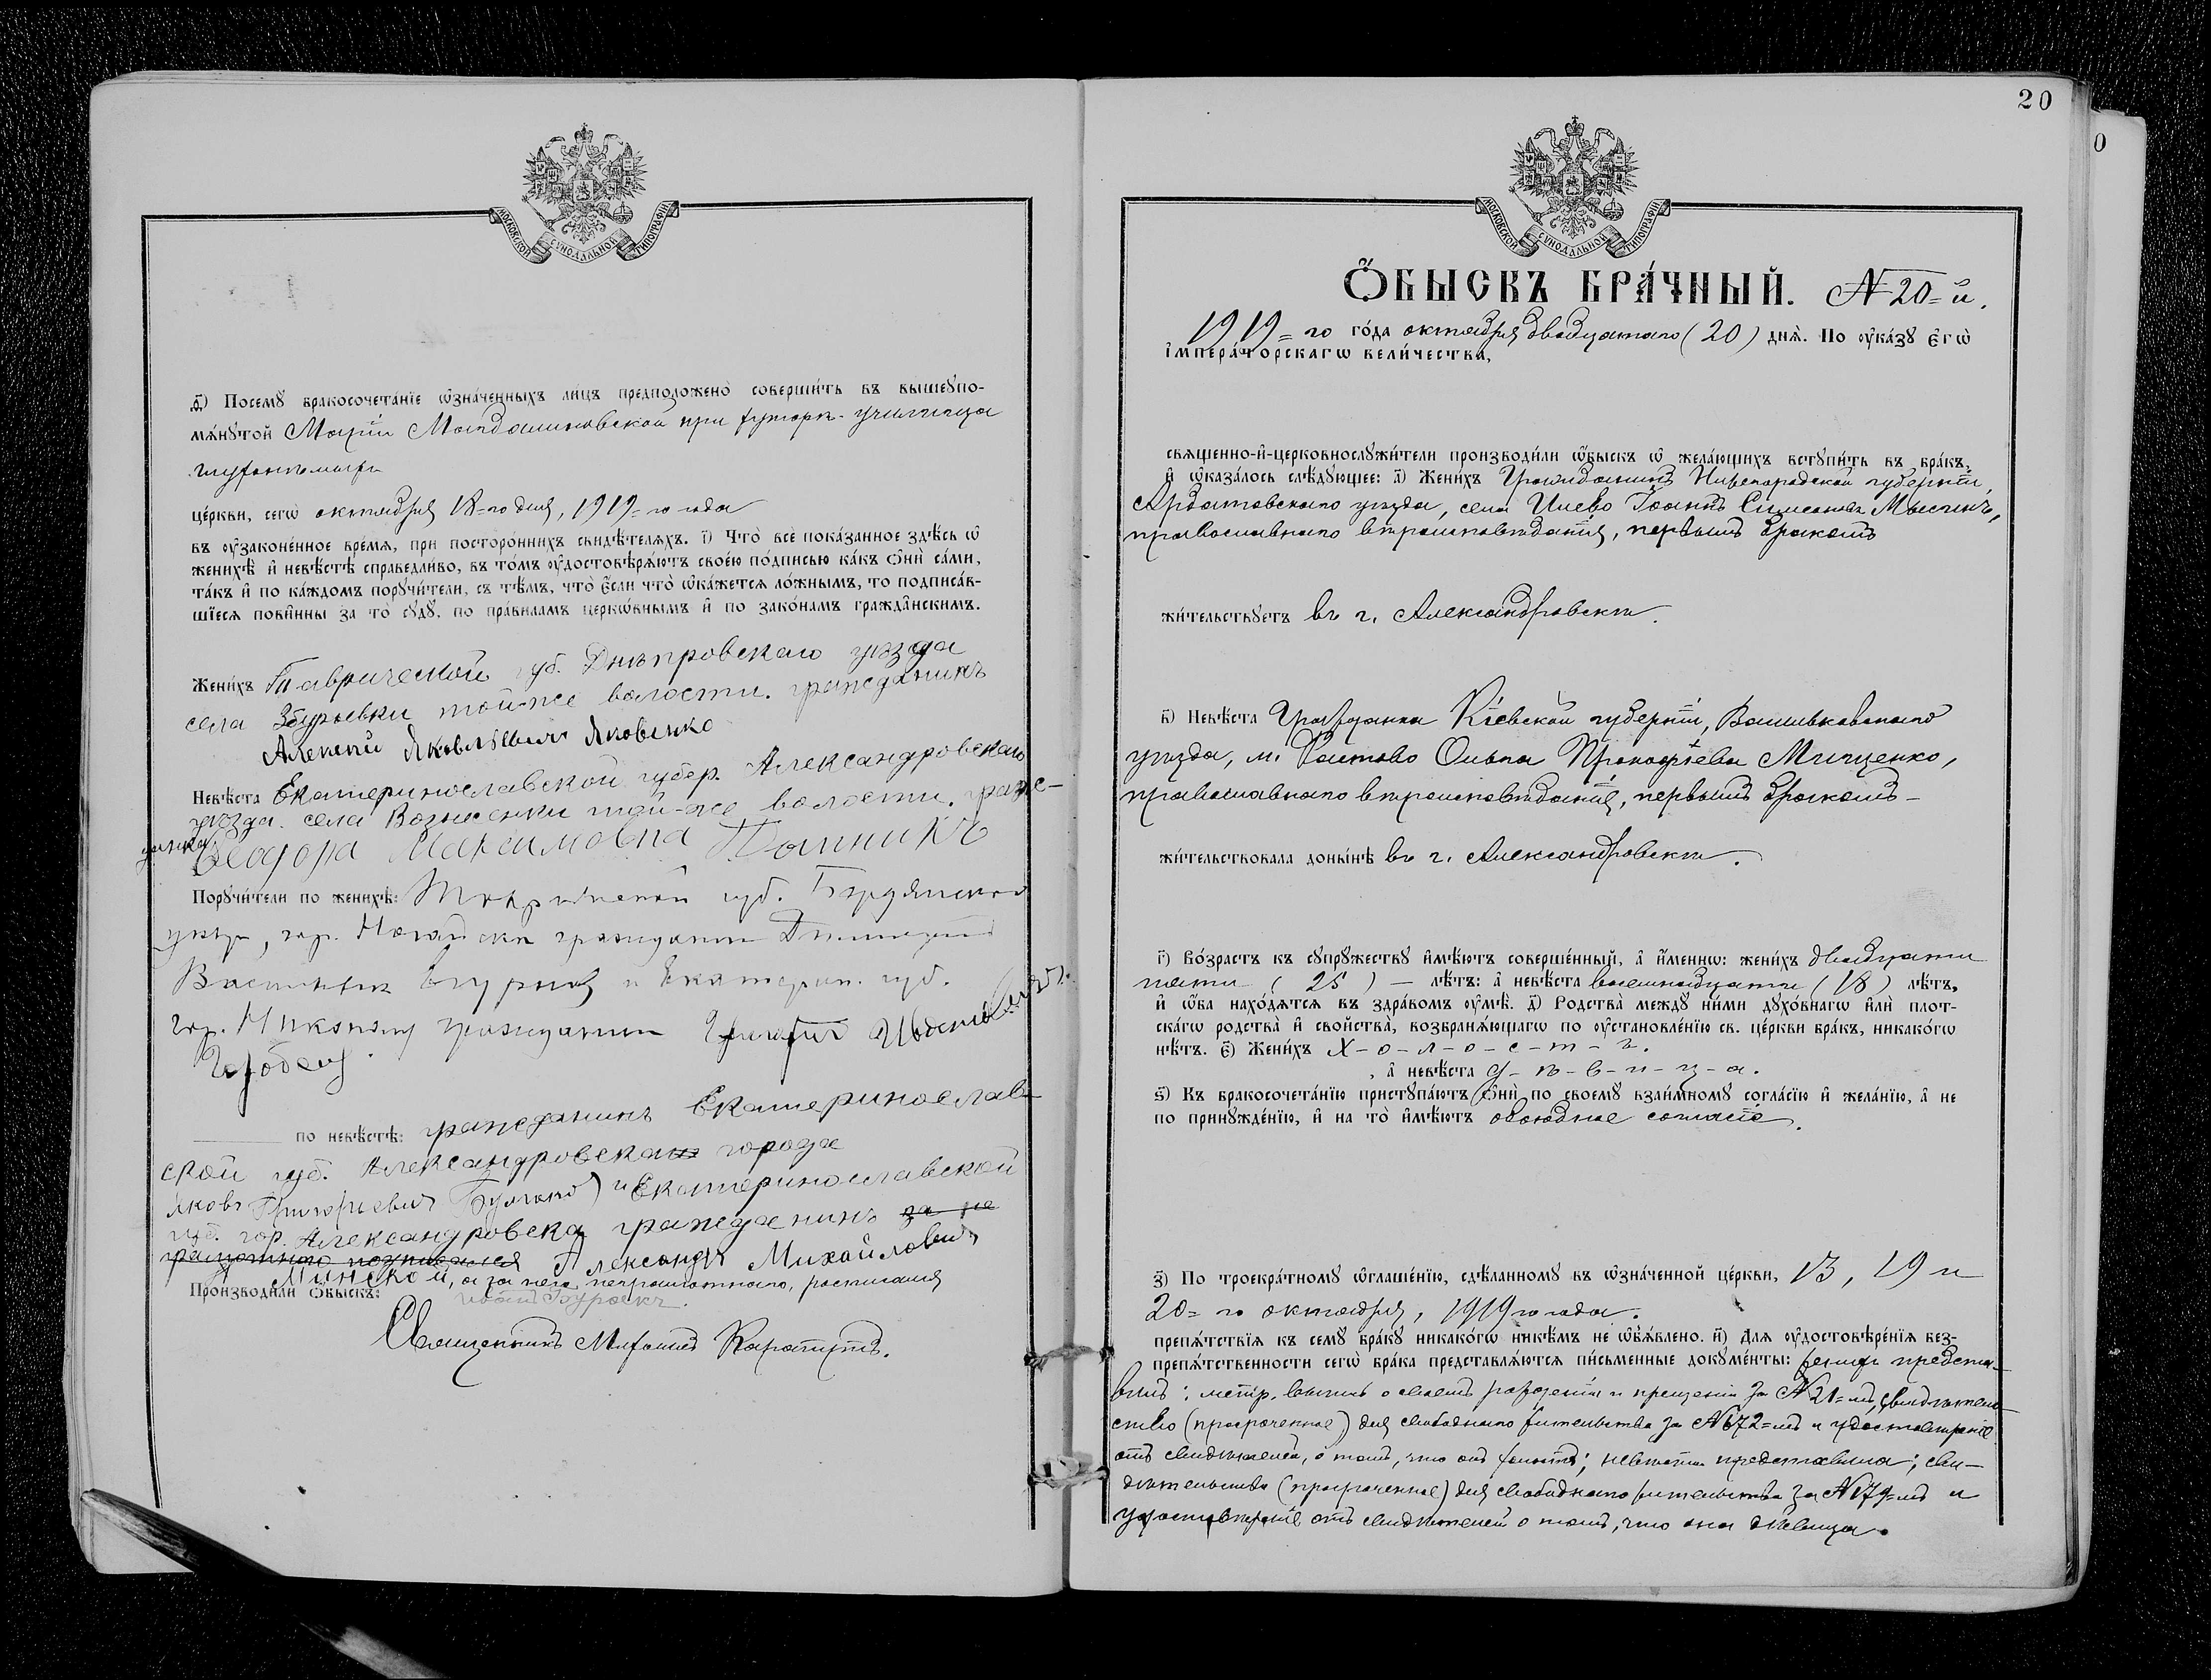 МОСКОВСКОЙ СѴНОДАЛЬНОЙ ТИПОГРАФІИ
д҃) Посемꙋ бракосочета́нїе ѡ҆зна́ченныхъ ли́цъ предположено̀ соверши́ть въ вышеꙋпо-
мѧ́нꙋтой Маріи Магдалиновской при хуторѣ-училища
глухонѣмыхъ
це́ркви, сегѡ̀ октября 18-го дня, 1919-го года
въ ᲂу҆законе́нное вре́мѧ, при посторо́ннихъ свидѣ́телѧхъ. і҃) Что̀ всѐ пока́занное здѣ́сь ѡ҆
женихѣ̀ и҆ невѣ́стѣ справедли́во, въ то́мъ ᲂу҆достовѣрѧ́ютъ свое́ю по́дписью ка́къ ѻ҆нѝ са́ми,
та́къ и҆ по ка́ждомъ порꙋчи́тели, съ тѣ́мъ, что̀ є҆́сли что̀ ѡ҆ка́жетсѧ ло́жнымъ, то подписа́в-
шїесѧ пови́нны за то̀ сꙋдꙋ̀, по пра́виламъ церко́внымъ и҆ по зако́намъ гражда́нскимъ.
Жени́хъ Таврической губ. Днѣпровскаго уѣзда
села Збурьевки той-же волости. гражданинъ
Алексѣй Яковлевичъ Яковенко
Невѣ́ста Екатеринославской губер. Александровскаго
уѣзда. села Вознесенки той-же волости. граж-
данка Ѳеодора Максимовна
Порꙋчи́тели по женихѣ̀: Таврической губ. Бердянскаго
уѣзда, гор. Ногайска гражданин Дмитрій
Васильевич и Екатерин. губ.
гор. Никополя гражданин Григорій Ивановичъ
по невѣ́стѣ: гражданинъ Екатеринослав-
ской губ. Александровска города
Яковъ Григорьевичъ и Екатеринославской
губ. гор. Александровска гражданинъ за не
грамотнаго подписался Александръ Михайловичъ
Минской, а за него, неграмотнаго, росписался
Производи́ли ѻ҆́быскъ: Иванъ
Священникъ Михаилъ
20
МОСКОВСКОЙ СѴНОДАЛЬНОЙ ТИПОГРАФІИ
Ѻ҆́БЫСКЪ БРА́ЧНЫЙ. № 20-й.
1919-го го́да октября двадцатаго (20) днѧ̀. По ᲂу҆ка́зꙋ є҆гѡ̀
і҆мпера́торскагѡ вели́чества,
свѧщенно-и҆-церковнослꙋжи́тели производи́ли ѡ҆́быскъ ѡ҆ жела́ющихъ встꙋпи́ть въ бра́къ,
и҆ ѡ҆каза́лось слѣ́дꙋющее: а҃) Жени́хъ Гражданинъ Нижегородской губерніи,
Ардатовскаго уѣзда, села Илево Іоаннъ Симеоновъ,
православнаго вѣроисповѣданія, первымъ бракомъ
жи́тельствꙋетъ въ г. Александровскѣ.
в҃) Невѣ́ста Гражданка Кіевской губерніи, Васильковскаго
уѣзда, м. Фастово Ольга Прокофіева Мищенко,
православнаго вѣроисповѣданія, первымъ бракомъ-
жи́тельствовала доны́нѣ въ г. Александровскѣ.
г҃) Во́зрастъ къ сꙋпрꙋ́жествꙋ и҆мѣ́ютъ соверше́нный, а҆ и҆́менно: жени́хъ двадцати
пяти (25) – лѣ́тъ: а҆ невѣ́ста восемнадцати (18) лѣ́тъ,
и҆ ѻ҆́ба нахо́дѧтсѧ въ здра́вомъ ᲂу҆мѣ̀. д҃) Родства̀ междꙋ ни́ми дꙋхо́внагѡ и҆лѝ плот-
ска́гѡ родства̀ и҆ свойства̀, возбранѧ́ющагѡ по ᲂу҆становле́нїю св. це́ркви бра́къ, никако́гѡ
нѣ́тъ. є҃) Жени́хъ х-о-л-о-с-т-ъ.
, а҆ невѣ́ста д-ѣ-в-и-ц-а.
ѕ҃) Къ бракосочета́нїю пристꙋпа́ютъ ѻ҆нѝ по своемꙋ̀ взаи́мномꙋ согла́сїю и҆ жела́нїю, а҆ не
по принꙋжде́нїю, и҆ на то̀ и҆мѣ́ютъ обоюдное согласіе.
з҃) По троекра́тномꙋ ѡ҆глаше́нїю, сдѣ́ланномꙋ въ ѡ҆зна́ченной це́ркви, 13, 19 и
20-го октября, 1919 го года.
препѧ́тствїѧ къ семꙋ̀ бра́кꙋ никако́гѡ никѣ́мъ не ѡ҆б̾ѧ́влено. и҃) Для ᲂу҆достовѣре́нїѧ без-
препѧ́тственности сегѡ̀ бра́ка представлѧ́ютсѧ пи́сьменные докꙋме́нты: женихъ предста-
вилъ: метр. выпись о своемъ рожденіи и крещеніи за № 21-мъ, свидѣтель-
ство (просроченное) для свободнаго жительства за № 672-мъ и удостовѣреніе
отъ свидѣтелей, о томъ, что онъ холостъ; невѣста представила: сви-
дѣтельство (просроченное) для свободнаго жительства за и
удостовѣреніе отъ свидѣтелей о томъ, что она дѣвица.